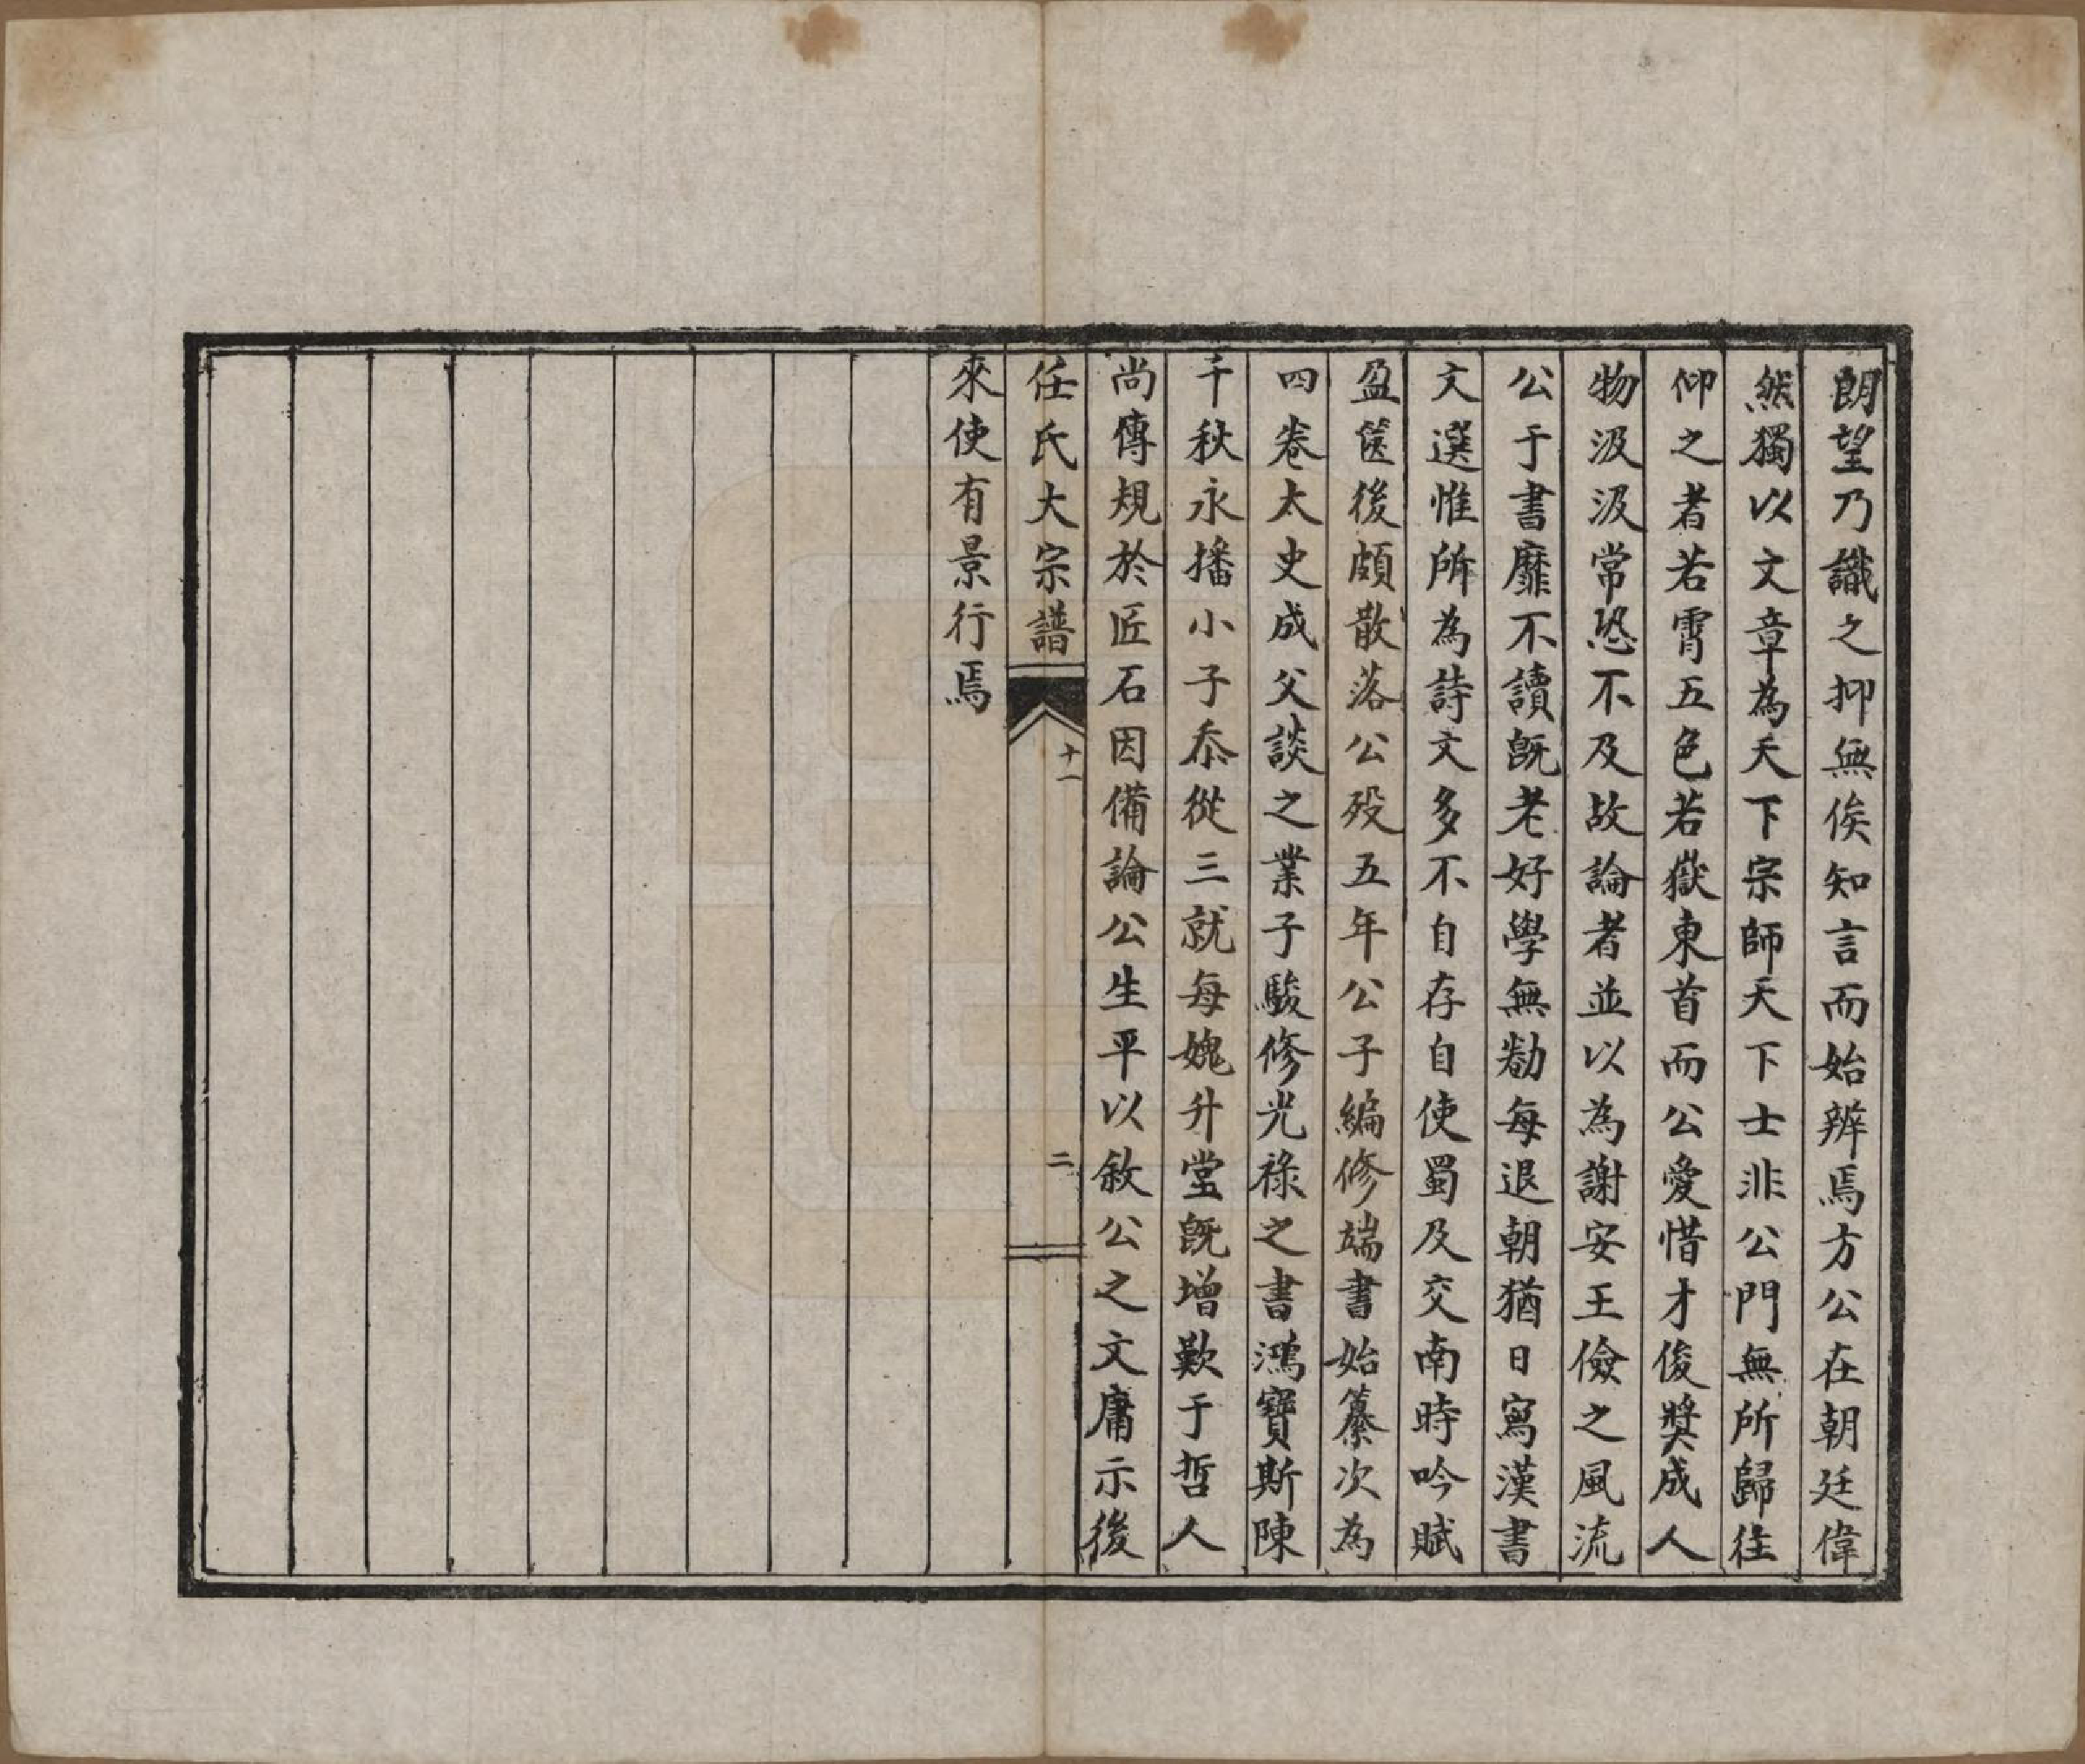 朗望乃識之抑無俟知言而始辨焉方公在朝廷偉
然獨以文章為天下宗師天下士非公門無所歸往
仰之者若霄五色若嶽東首而公愛惜才俊獎成人
物汲汲常恐不及故論者並以為謝安王儉之風流
公于書靡不讀既老好學無勌每退朝猶日寫漢書
文選惟所為詩文多不自存自使蜀及交南時吟賦
盈篋後頗散落公歿五年公子編修端書始纂次為
四卷太史成父談之業子駿修光祿之書鴻寶斯陳
千秋永播小子忝從三就每媿升堂既增歎于哲人
尚傳規於匠石因備論公生平以敘公之文庸示後
任氏大宗譜 十一 二
來使有景行焉